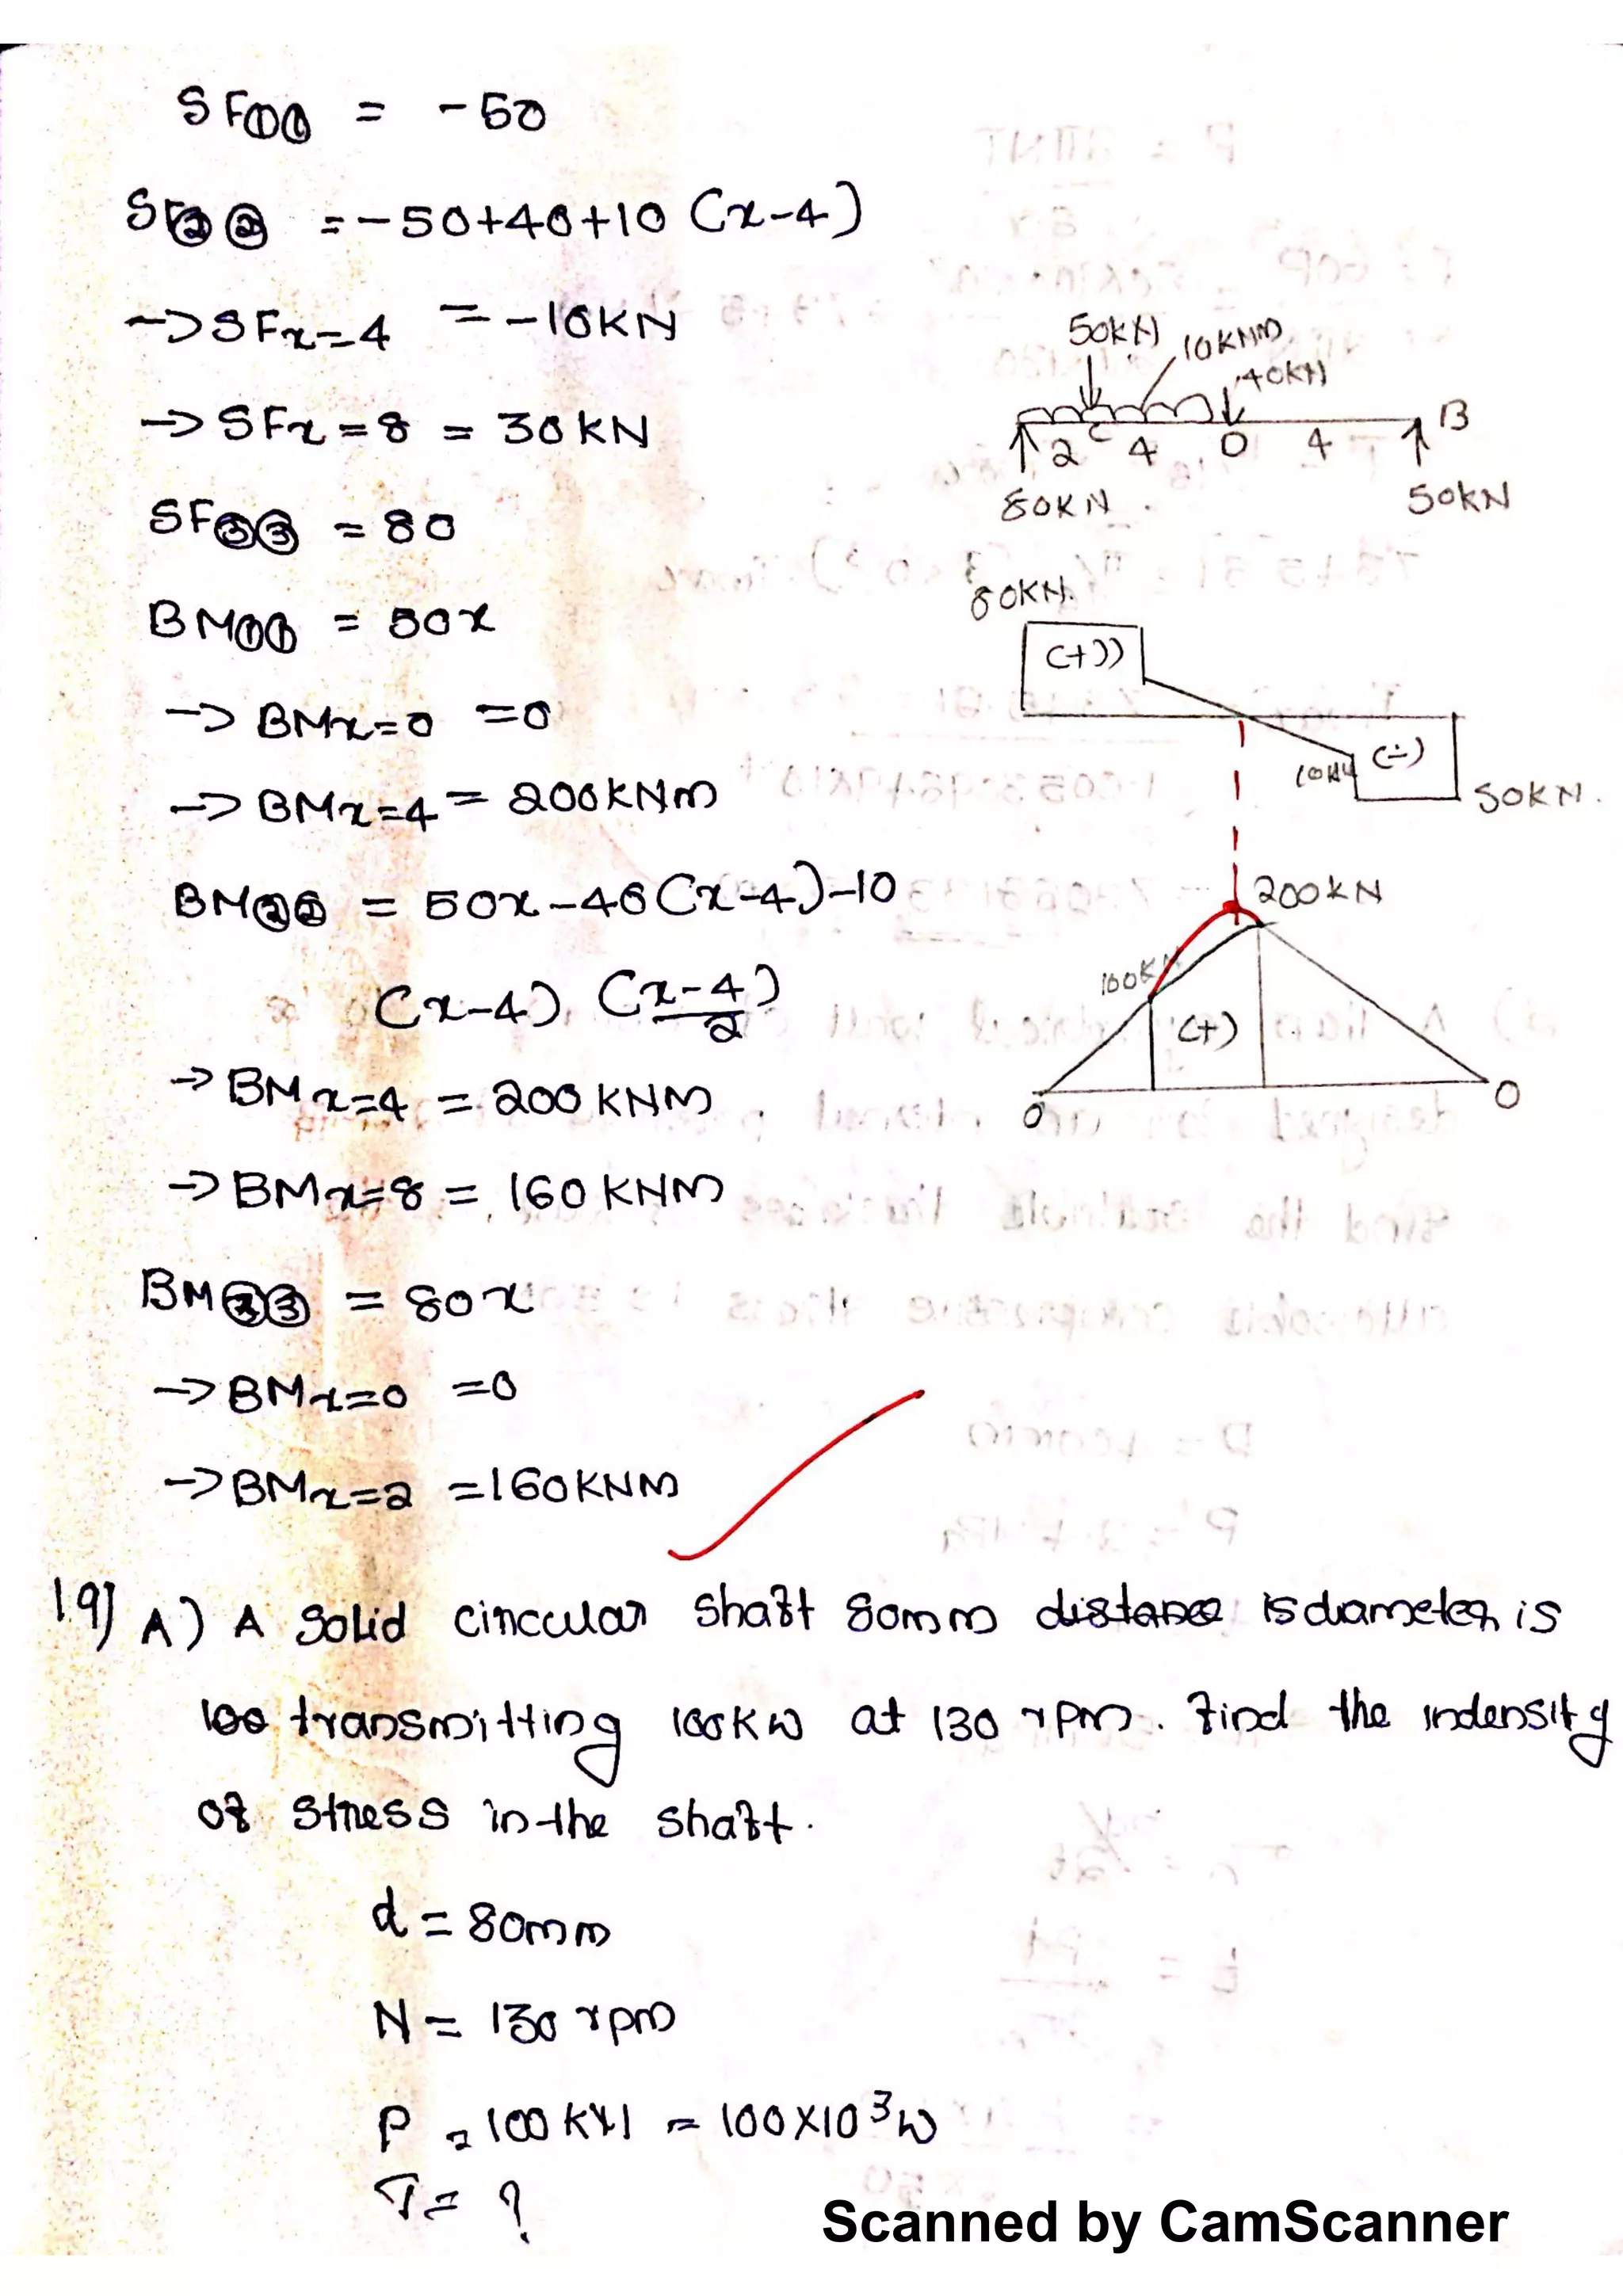 SF①① = -50
SF②② = -50+40+10 (x-4)
→SFx=4 = -10KN
→ SFx=8 = 30KN
SF③③ = 80
BM①① = 50x
→ BMx=0 =0
→ BMx=4 = 200KNM
BM②② = 50x-40(x-4)-10
(x-4) (x-4/2)
→ BMx=4 = 200KNM
→ BMx=8 = 160KNM
BM③③ = 80x
→BMx=0 =0
→BMx=2 =160KNM
50KN
10KNM
40KN
B
2 C 4 D 4
80KN
50KN
80KN.
(+)
10KN
(-)
50KN.
200KN
100KN
(+)
0
0
19) A) A Solid circular shaft 80mm distance is diameter is
100 transmitting 100KW at 130 rpm. Find the indensity
of stress in the shaft.
d = 80mm
N = 130 rpm
P = 100KW = 100X10³W
T = ?
Scanned by CamScanner